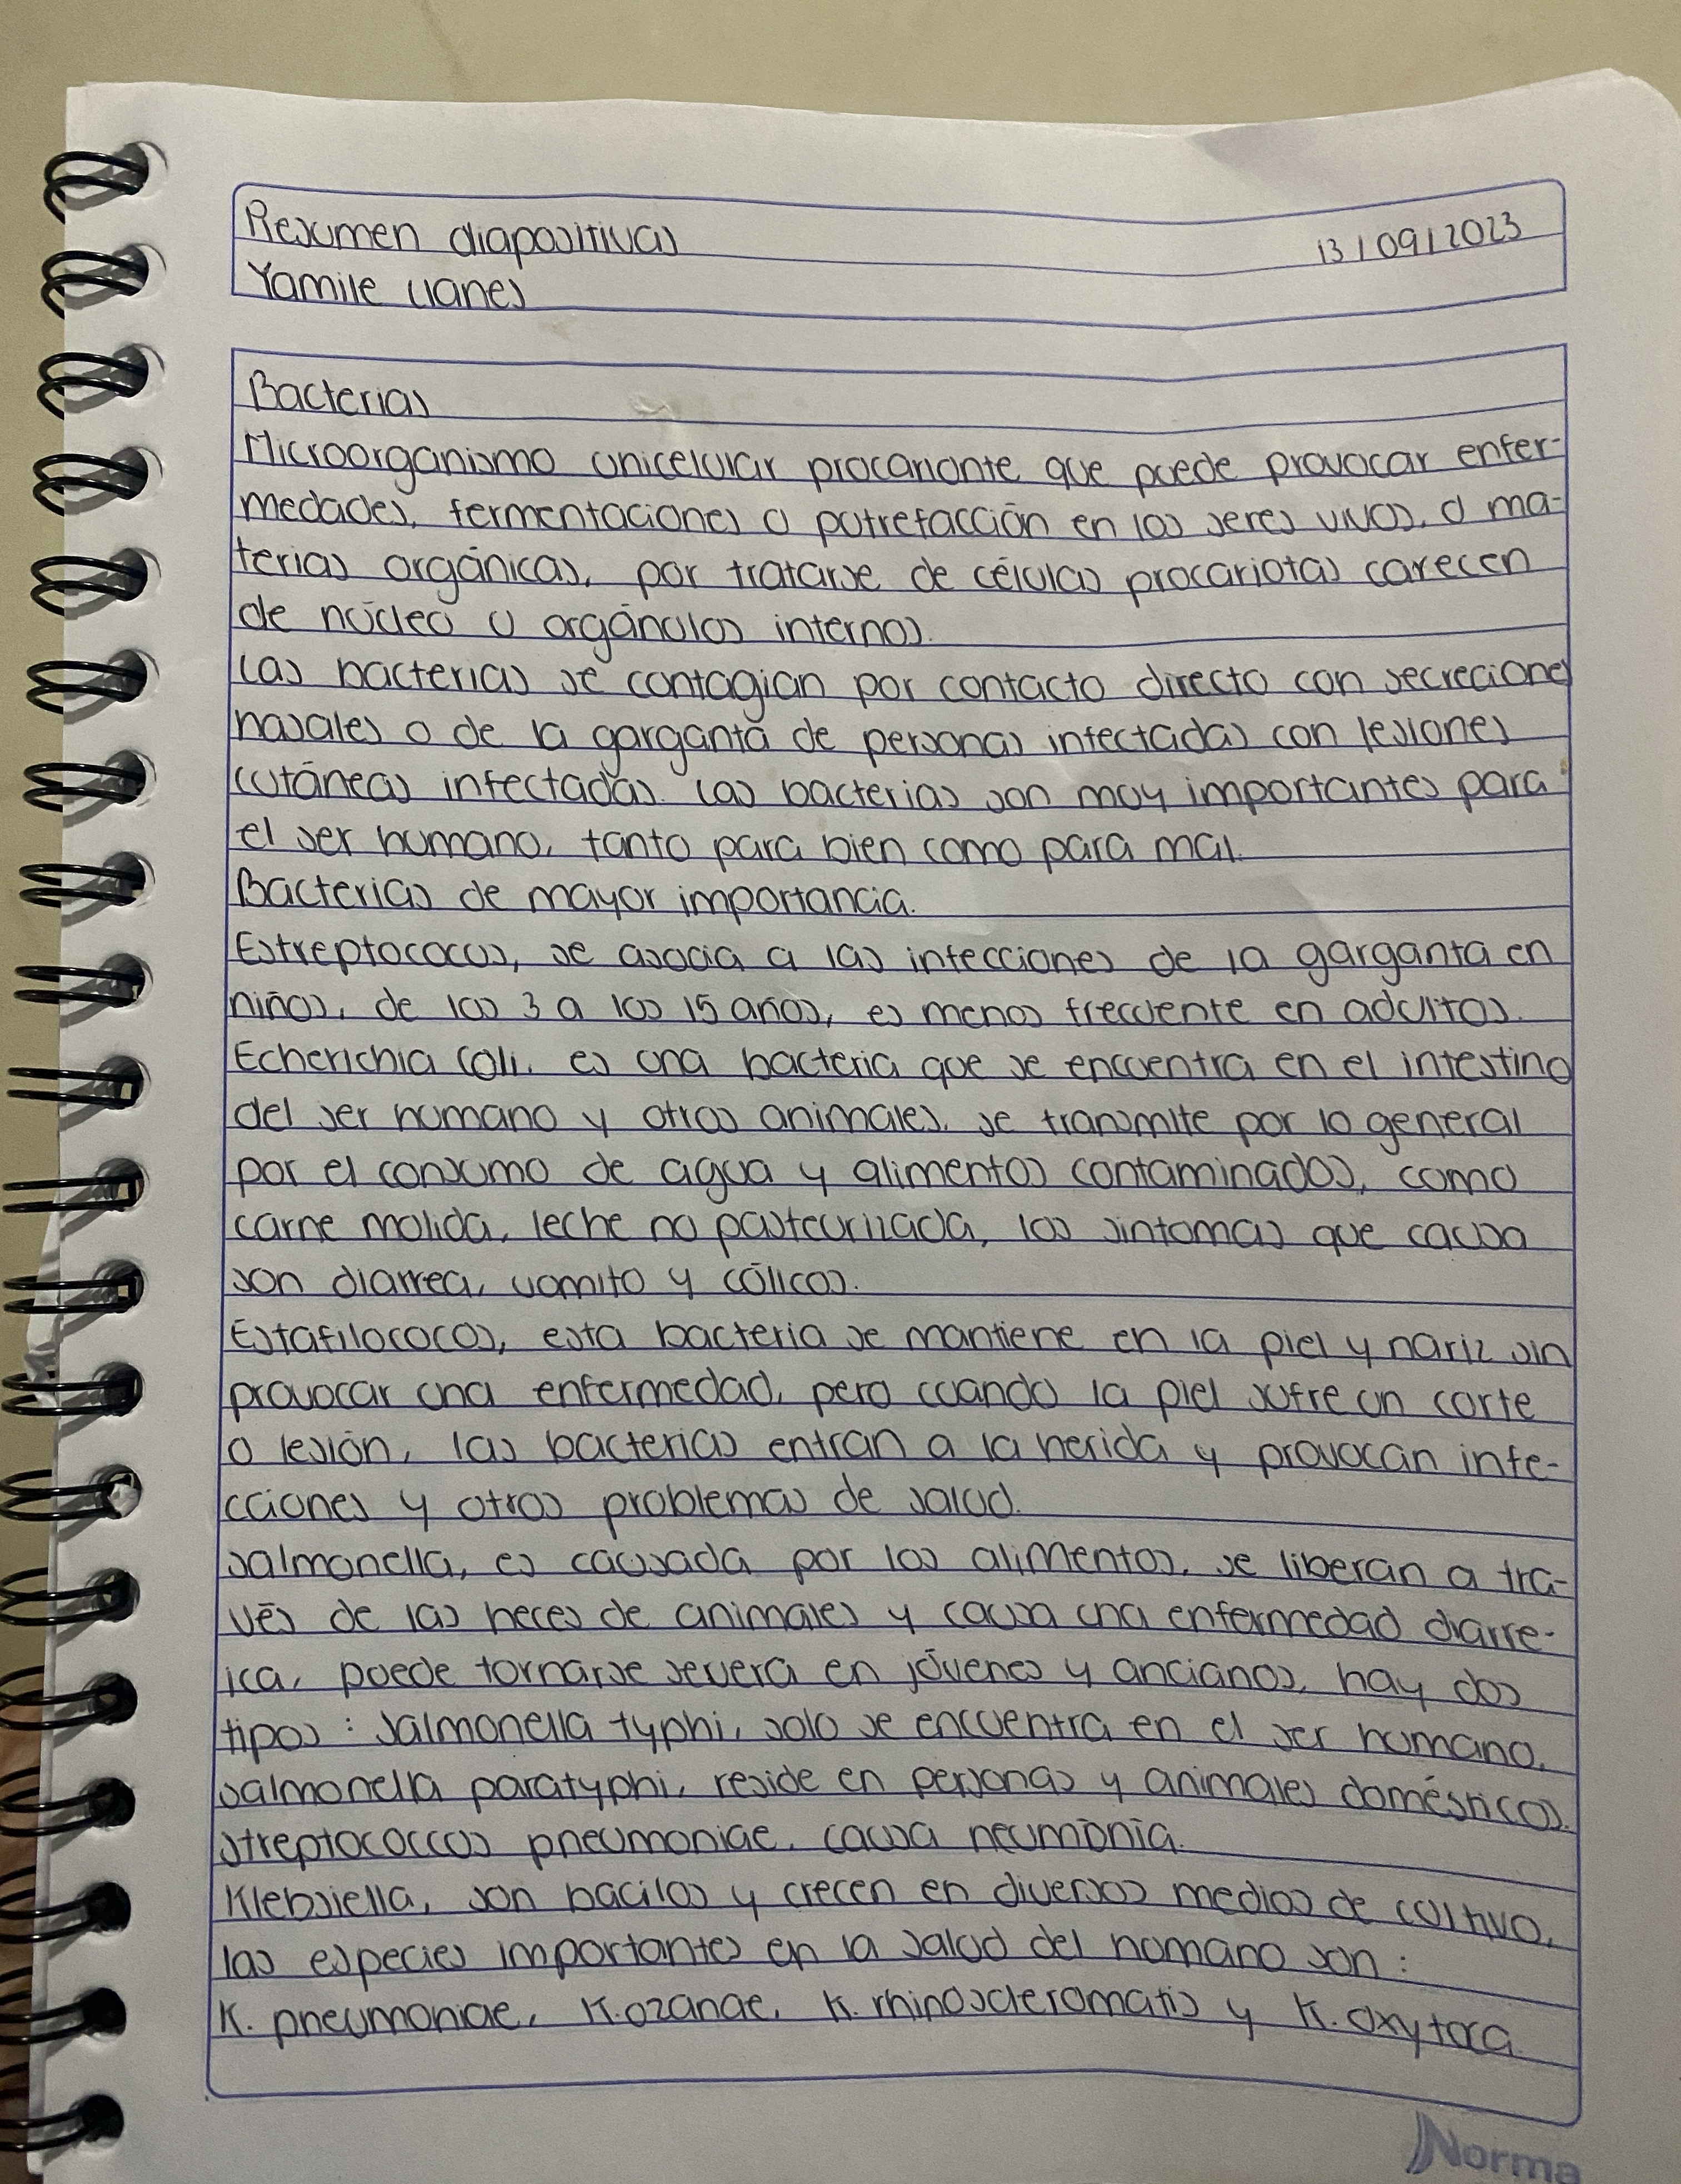 Resumen diapositivas
13/09/2023
Yamile Llanes
Bacterias
Microorganismo unicelular procarionte que puede provocar enfer-
medades, fermentaciones o putrefacción en los seres vivos, o ma-
terias orgánicas, por tratarse de células procariotas carecen
de núcleo u orgánulos internos.
Las bacterias se contagian por contacto directo con secreciones
nasales o de la garganta de personas infectadas con lesiones
cutáneas infectadas. Las bacterias son muy importantes para
el ser humano, tanto para bien como para mal.
Bacterias de mayor importancia.
Estreptococus, se asocia a las infecciones de la garganta en
niños, de los 3 a los 15 años, es menos frecuente en adultos.
Echerichia Coli, es una bacteria que se encuentra en el intestino
del ser humano y otros animales, se transmite por lo general
por el consumo de agua y alimentos contaminados, como
carne molida, leche no pasteurizada, los sintomas que causa
son diarrea, vomito y cólicos.
Estafilococos, esta bacteria se mantiene en la piel y nariz sin
provocar una enfermedad, pero cuando la piel sufre un corte
o lesión, las bacterias entran a la herida y provocan infe-
cciones y otros problemas de salud.
Salmonella, es causada por los alimentos, se liberan a tra-
vés de las heces de animales y causa una enfermedad diarre-
ica, puede tornarse severa en jóvenes y ancianos, hay dos
tipos: Salmonella typhi, solo se encuentra en el ser humano,
Salmonella paratyphi, reside en personas y animales domésticos.
Streptococcos pneumoniae, causa neumonía.
Klebsiella, son bacilos y crecen en diversos medios de cultivo,
las especies importantes en la salud del humano son:
K. pneumoniae, K. ozanae, K. rhinoscleromatis y K. oxytoca
Norma